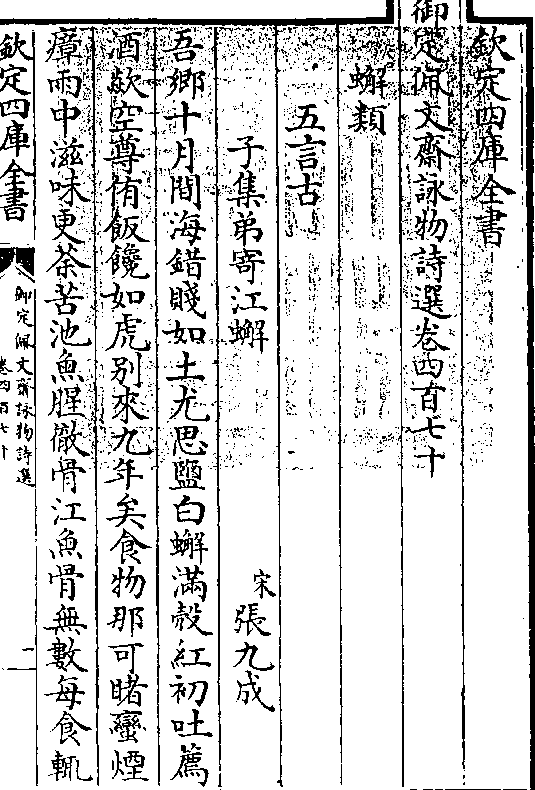 欽定四庫全書
御定佩文齋詠物詩選卷四百七十
蠏類
五言古
子集弟寄江蠏 宋張九成
吾鄉十月間海錯賤如土尤思鹽白蠏滿殼紅初吐薦
酒欻空尊侑飯饞如虎别來九年矣食物那可睹蠻煙
瘴雨中滋味更荼苦池魚腥徹骨江魚骨無數每食輒
欽定四庫全書
御定佩文齋詠物詩選
卷四百七十
一